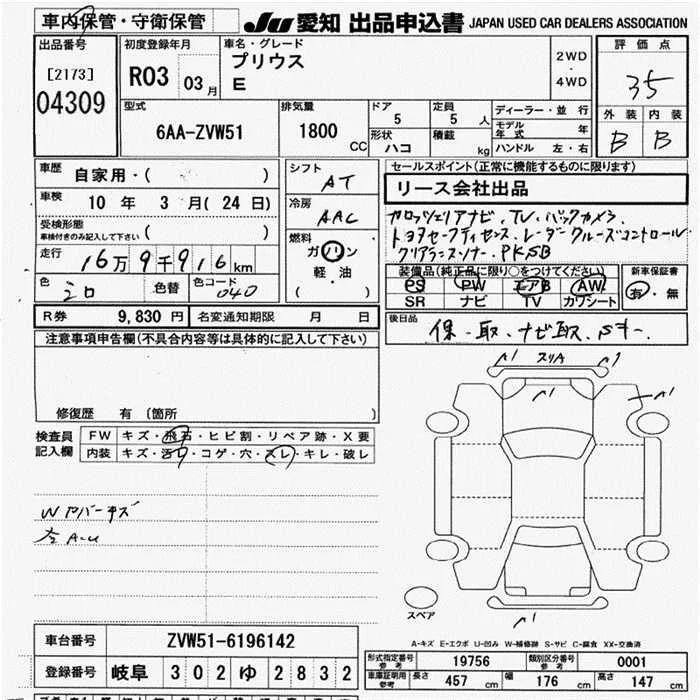 車内保管・守衛保管 JU 愛知 出品申込書 JAPAN USED CAR DEALERS ASSOCIATION
出品番号 [2173] 04309
初度登録年月 R03 03月
車名・グレード プリウス E
2WD ・ 4WD
評価点 3.5
外装 内装 B B
型式 6AA-ZVW51
排気量 1800 CC
ドア 5 定員 5 人
形状 ハコ 積載 kg
ディーラー・並行
モデル年式 年
ハンドル 左・右
車歴 自家用・( )
車検 10 年 3 月(24日)
受検形態 車検付きのみ記入して下さい ( )
走行 16万9千916km
色 色替 色コード 040
シフト AT
冷房 AAC
燃料 ガソリン 軽・油 ( )
セールスポイント(正常に機能するものに限ります)
リース会社出品
カロッツェリアナビ、TV、バックカメラ、
トヨタセーフティセンス、レーダークルーズコントロール
クリアランスソナー、PKSB
装備品(純正品に限り○をつけてください)
PS PW エアB AW
SR ナビ TV カワシート
新車保証書 有・無
R券 9,830 円 名変通知期限 月 日
後日品 保・取、ナビ取、Sキー
注意事項申告欄(不具合内容等は具体的に記入して下さい)
修復歴 有 (箇所 )
検査員記入欄
FW キズ・飛石・ヒビ割・リペア跡・X要
内装 キズ・汚れ・コゲ・穴・スレ・キレ・破レ
スリA
Wアバーキズ
スペア
A-キズ E-エクボ U-凹み W-補修跡 S-サビ C-腐食 XX-交換済
車台番号 ZVW51-6196142
登録番号 岐阜 302 ゆ 2832
形式指定番号 参考 19756 類別区分番号 参考 0001
車庫証明用 参考 長さ 457 cm 幅 176 cm 高さ 147 cm